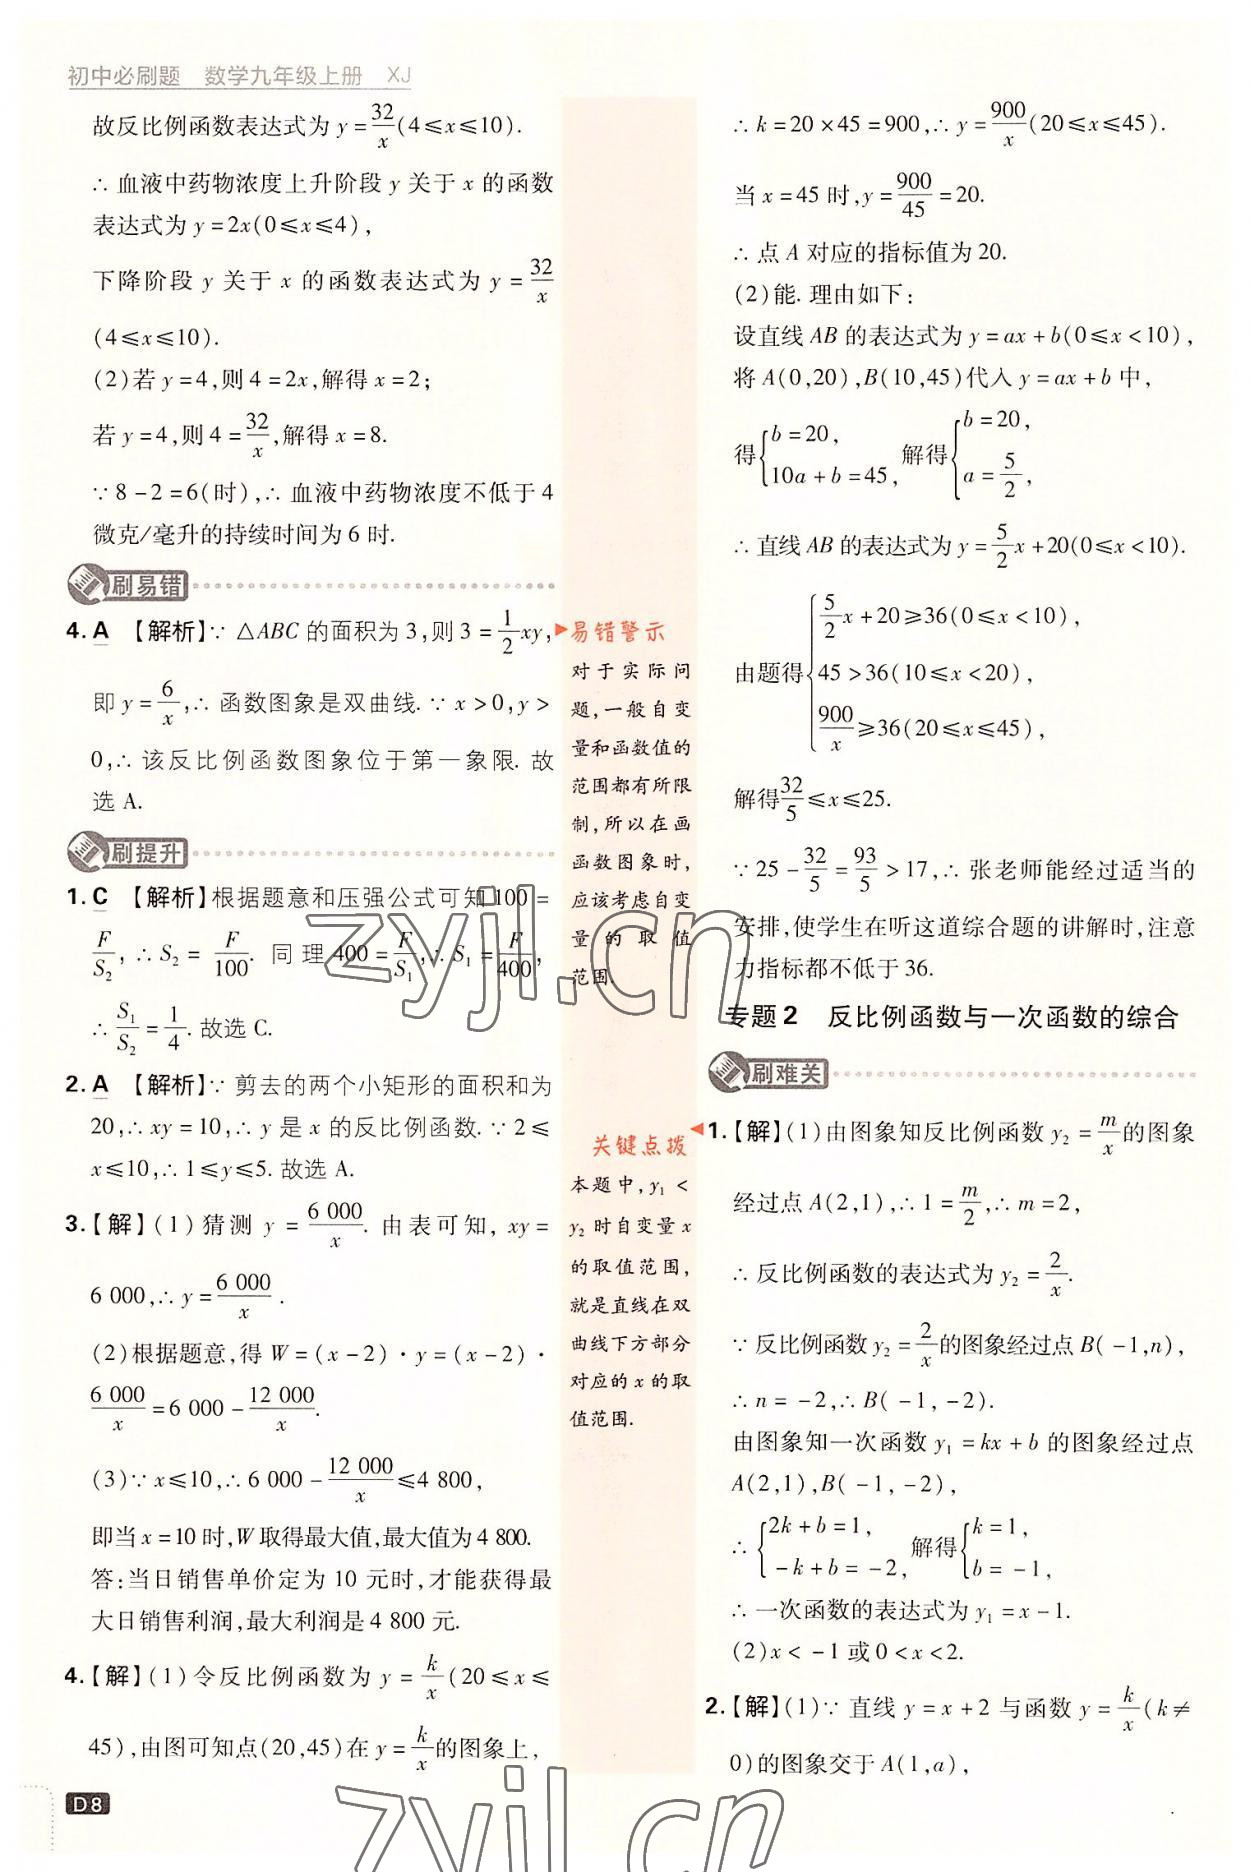 初中必刷题 数学九年级上册 XJ
故反比例函数表达式为 y=32/x(4≤x≤10).
∴ 血液中药物浓度上升阶段 y 关于 x 的函数
表达式为 y=2x(0≤x≤4),
下降阶段 y 关于 x 的函数表达式为 y=32/x
(4≤x≤10).
(2)若 y=4,则 4=2x,解得 x=2;
若 y=4,则 4=32/x,解得 x=8.
∵ 8-2=6(时),∴ 血液中药物浓度不低于 4
微克/毫升的持续时间为 6 时.
刷易错
4. A 【解析】∵ △ABC 的面积为 3,则 3=1/2xy,
即 y=6/x,∴ 函数图象是双曲线. ∵ x>0,y>
0,∴ 该反比例函数图象位于第一象限. 故
选 A.
刷提升
1. C 【解析】根据题意和压强公式可知 100=
F/S₂, ∴ S₂ = F/100. 同理 400=F/S₁,∴ S₁=F/400,
∴ S₁/S₂=1/4. 故选 C.
2. A 【解析】∵ 剪去的两个小矩形的面积和为
20,∴ xy=10,∴ y 是 x 的反比例函数. ∵ 2≤
x≤10,∴ 1≤y≤5. 故选 A.
3.【解】(1)猜测 y=6 000/x. 由表可知, xy=
6 000,∴ y=6 000/x .
(2)根据题意,得 W=(x-2)·y=(x-2)·
6 000/x=6 000-12 000/x.
(3)∵ x≤10,∴ 6 000-12 000/x≤4 800,
即当 x=10 时,W 取得最大值,最大值为 4 800.
答:当日销售单价定为 10 元时,才能获得最
大日销售利润,最大利润是 4 800 元.
4.【解】(1)令反比例函数为 y=k/x(20≤x≤
45),由图可知点(20,45)在 y=k/x的图象上,
D8
易错警示
对于实际问
题,一般自变
量和函数值的
范围都有所限
制,所以在画
函数图象时,
应该考虑自变
量的取值
范围.
关键点拨
本题中,y₁<
y₂ 时自变量 x
的取值范围,
就是直线在双
曲线下方部分
对应的 x 的取
值范围.
∴ k=20×45=900,∴ y=900/x(20≤x≤45).
当 x=45 时,y=900/45=20.
∴ 点 A 对应的指标值为 20.
(2)能. 理由如下:
设直线 AB 的表达式为 y=ax+b(0≤x<10),
将 A(0,20),B(10,45)代入 y=ax+b 中,
得{b=20, 10a+b=45, 解得{b=20, a=5/2,
∴ 直线 AB 的表达式为 y=5/2x+20(0≤x<10).
由题得{5/2x+20≥36(0≤x<10),
45>36(10≤x<20),
900/x≥36(20≤x≤45),
解得32/5≤x≤25.
∵ 25-32/5=93/5>17,∴ 张老师能经过适当的
安排,使学生在听这道综合题的讲解时,注意
力指标都不低于 36.
专题 2 反比例函数与一次函数的综合
刷难关
1.【解】(1)由图象知反比例函数 y₂=m/x的图象
经过点 A(2,1),∴ 1=m/2,∴ m=2,
∴ 反比例函数的表达式为 y₂=2/x.
∵ 反比例函数 y₂=2/x的图象经过点 B(-1,n),
∴ n=-2,∴ B(-1,-2).
由图象知一次函数 y₁=kx+b 的图象经过点
A(2,1),B(-1,-2),
∴ {2k+b=1, -k+b=-2, 解得{k=1, b=-1,
∴ 一次函数的表达式为 y₁=x-1.
(2)x<-1 或 0<x<2.
2.【解】(1)∵ 直线 y=x+2 与函数 y=k/x(k≠
0)的图象交于 A(1,a),
zyjl.cn
zyjl.cn